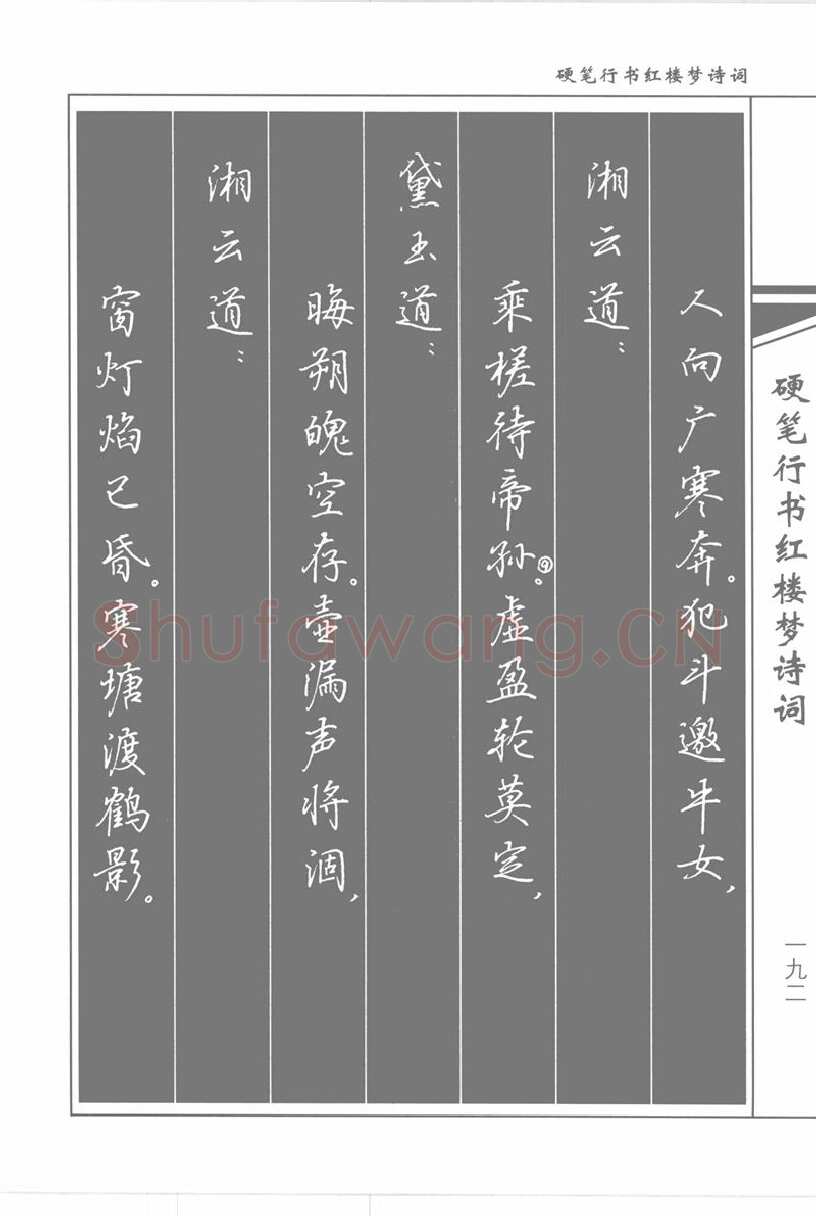 硬笔行书红楼梦诗词
人向广寒奔。犯斗邀牛女,
湘云道:
乘槎待帝孙⑨。虚盈轮莫定,
黛玉道:
晦朔魄空存。壶漏声将涸,
湘云道:
窗灯焰已昏。寒塘渡鹤影。
硬笔行书红楼梦诗词
一九二
Shufawang.CN